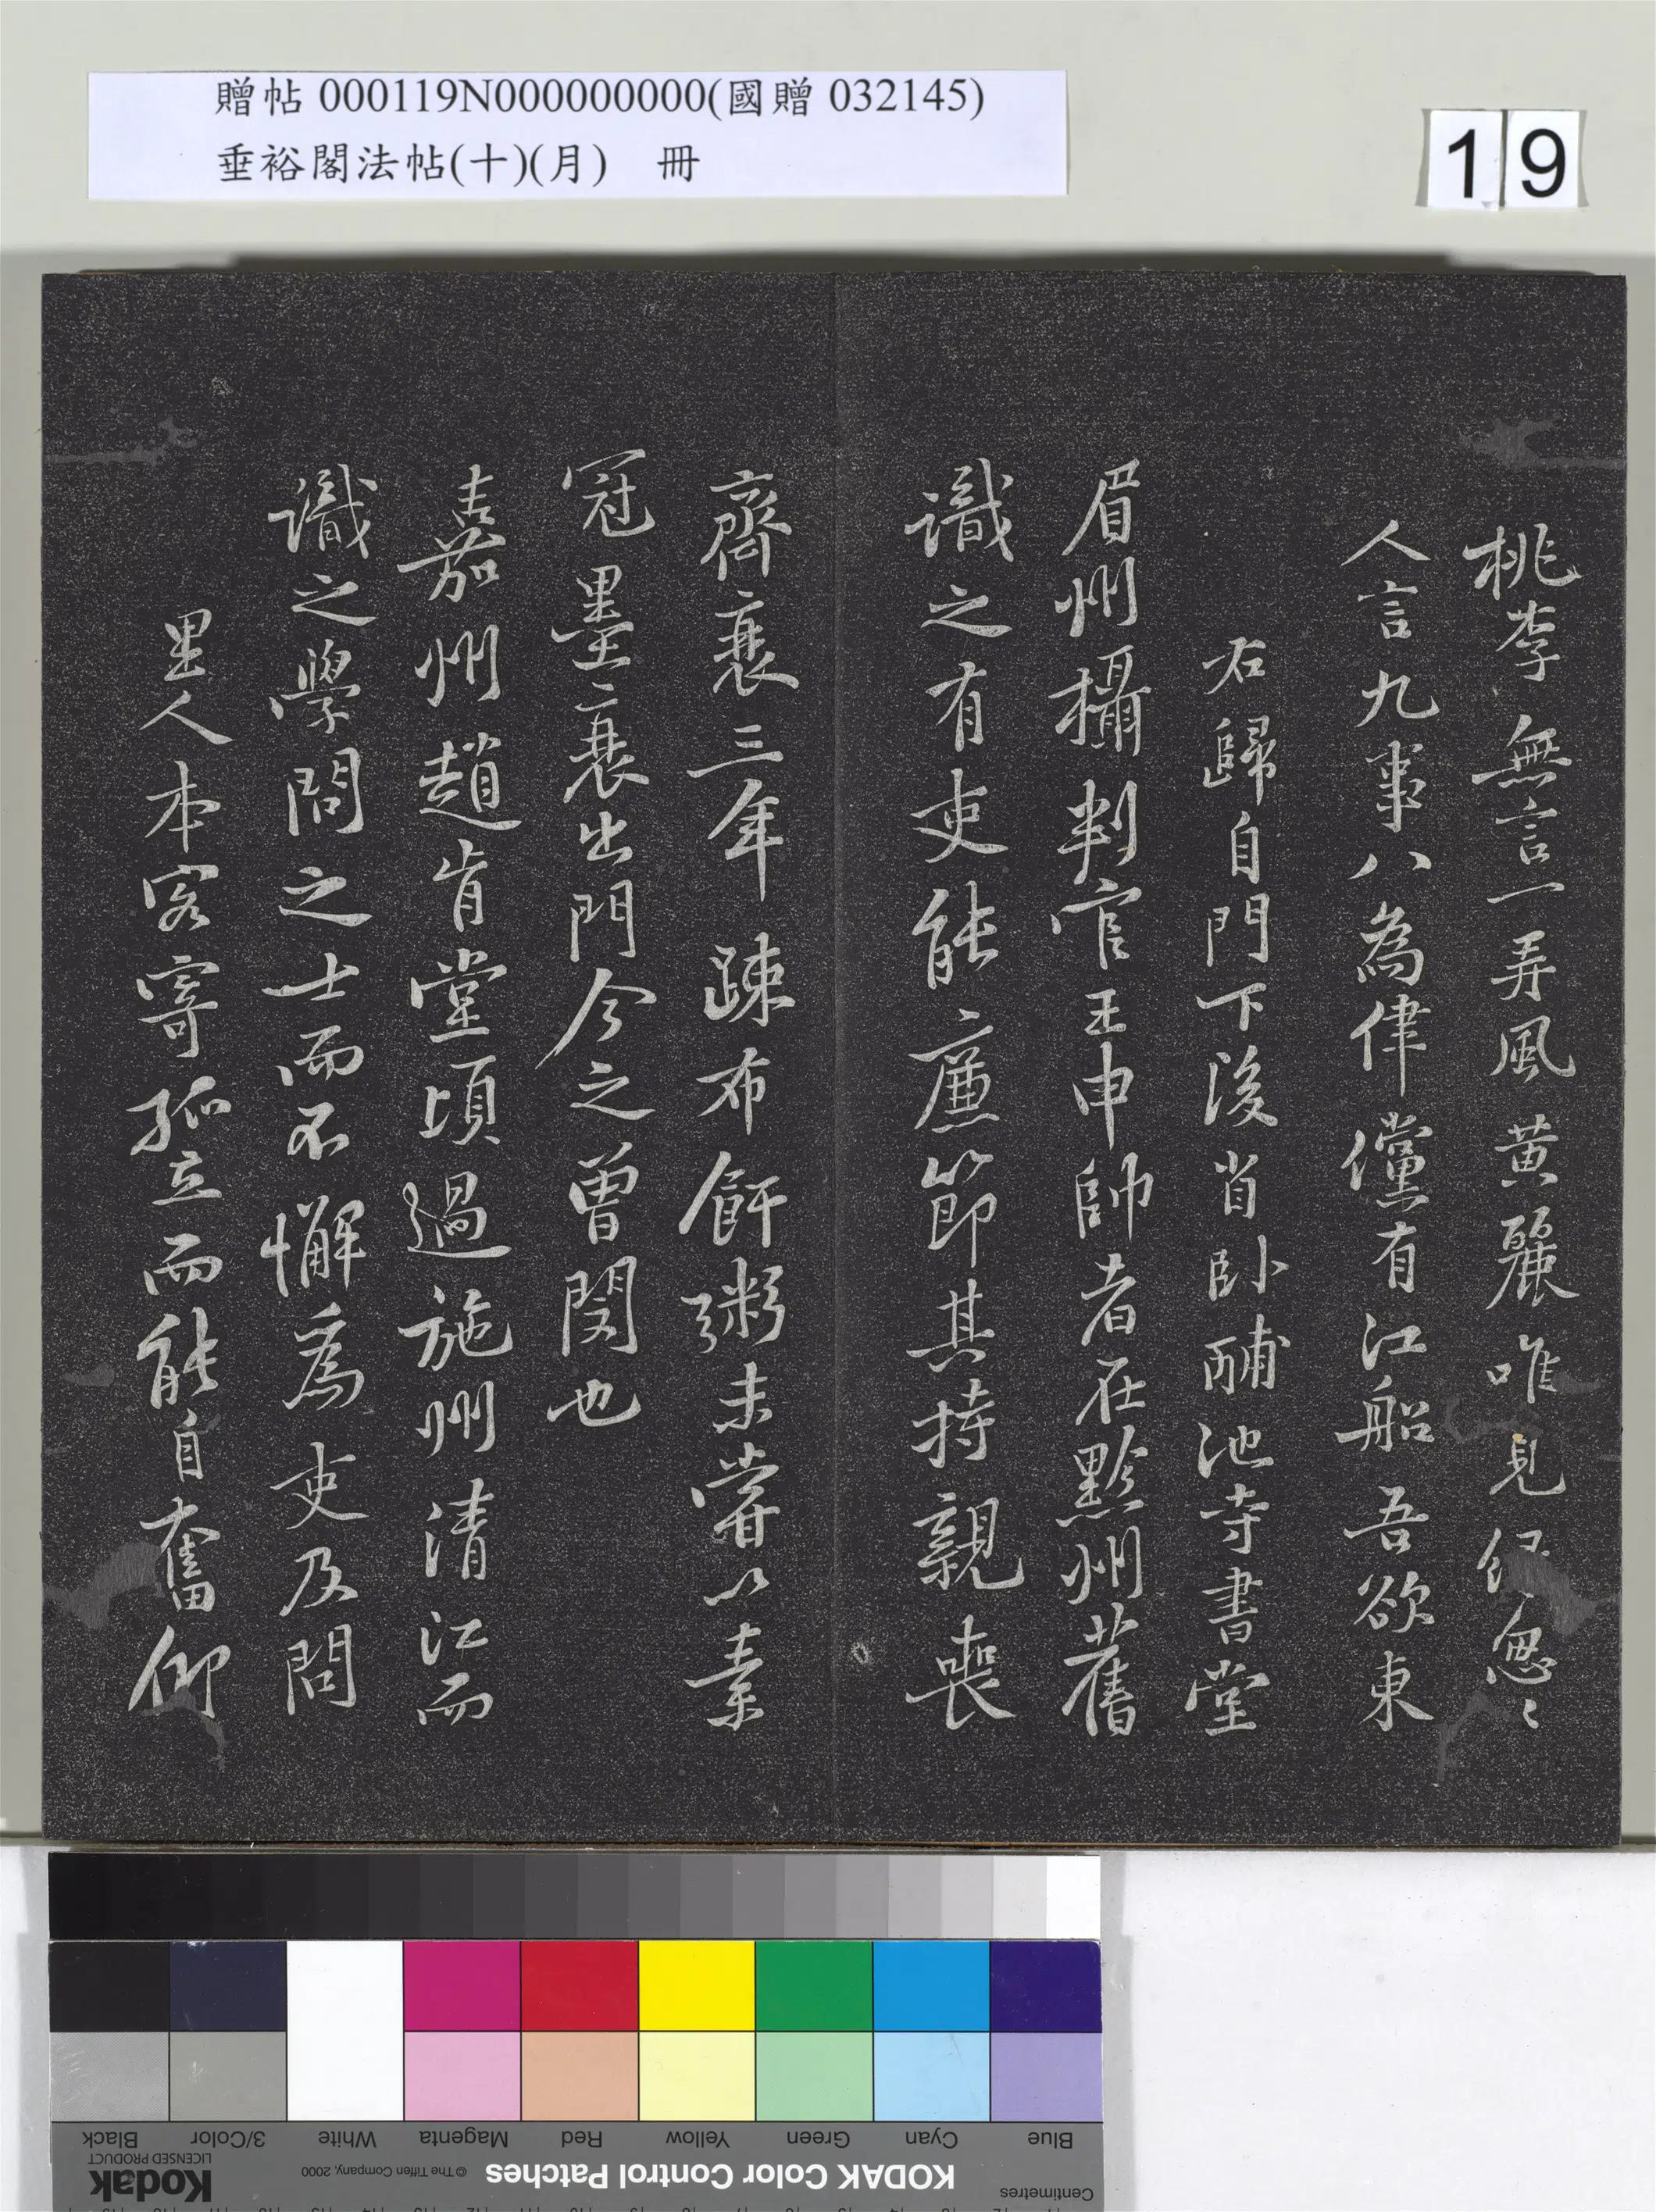 贈帖 000119N000000000(國贈 032145)
垂裕閣法帖(十)(月) 冊
19
桃李無言一弄風黃麗唯見綠怱〻
人言九事八為律儻有江船吾欲東
右歸自門下後省臥酺池寺書堂
眉州攝判官王申帥者在黔州舊
識之有吏能廉節其持親喪
齊衰三年疎布飦粥未嘗以素
冠墨衰出門今之曾閔也
嘉州趙肯堂頃過施州清江而
識之學問之士而不懈為吏及問
里人本客寄孤立而能自奮仰
Black
3/Color
White
Magenta
Red
Yellow
Green
Cyan
Blue
Kodak
LICENSED PRODUCT
© The Tiffen Company, 2000
KODAK Color Control Patches
Centimetres